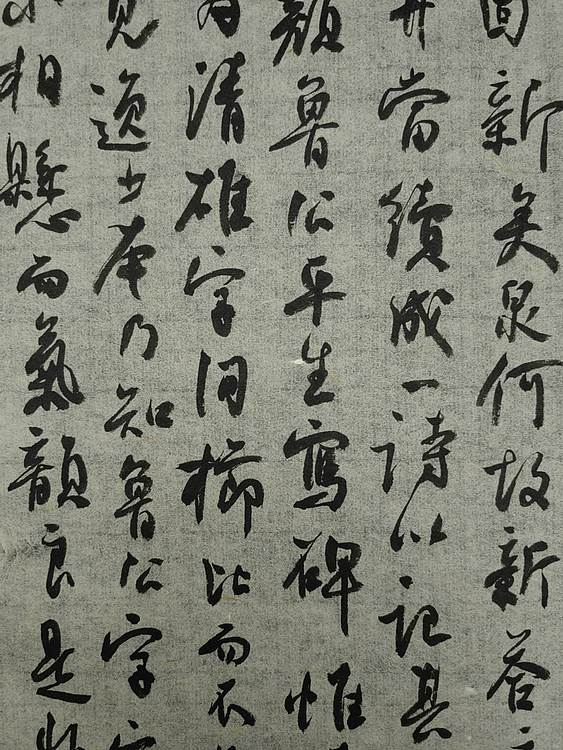 固新矣泉何故新答
井當續成一詩以記其
顏魯公平生寫碑惟
為清雄字間櫛比而不
見逸少本乃知魯公字
相懸而氣韻良是